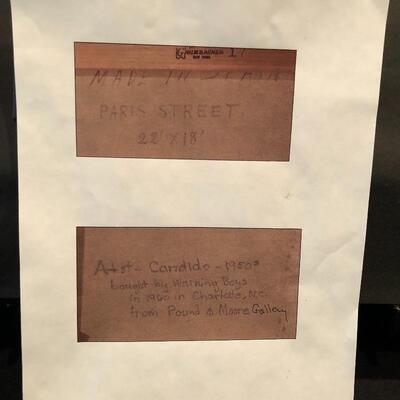 NEW YORK
MADE IN
PARIS STREET.
22' X 18'
Atst - Candido - 1950s
bought by Warning Boys
in 1960 in Charlotte, N.C.
from Pound & Moore Gallery